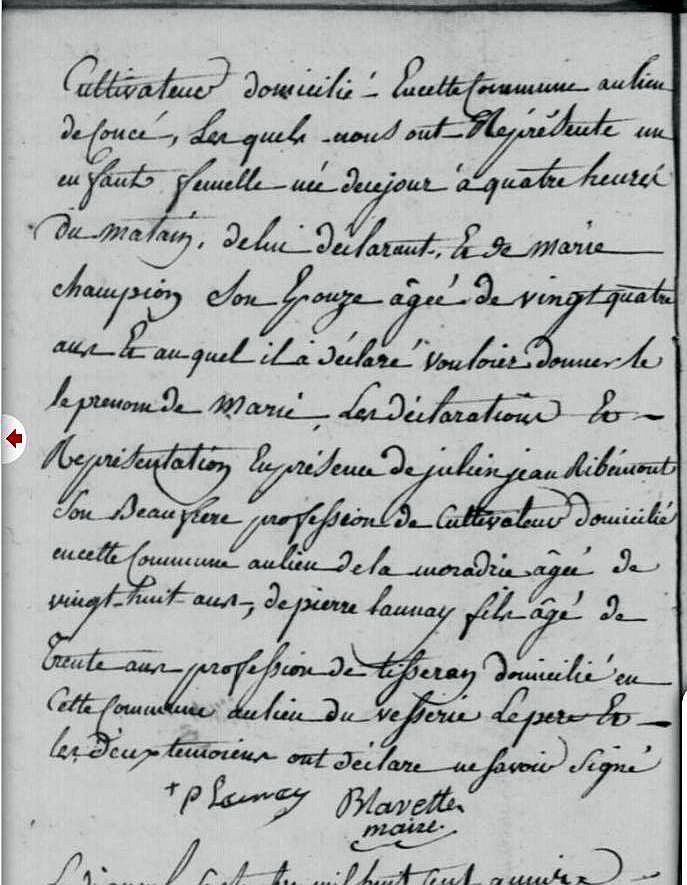 Cultivateur domicilié En cette Commune au lieu
de Concé, Les quels nous ont Représenté un
en fant femelle née de ce jour à quatre heures
Du matain, de lui déclarant, Et de marie
champion Son Epouze âgée de vingt quatre
ans Et au quel il à déclaré vouloier donner le
le prenom de Marie, Les déclarations Et
Représentation En présence de julien jean Ribémont
Son Beaufrere profession de Cultivateur domicilié
en cette Commune au lieu de la moradrie âgée de
vingt-huit ans, de pierre launay fils âgé de
trente ans profession de tisseran domicilié en
Cette Commune au lieu du vesserie Le pere Et
les deux temoiens ont déclare ne savoir Signé
+ p Launay Blavette
maire
mil huit cent onzzième